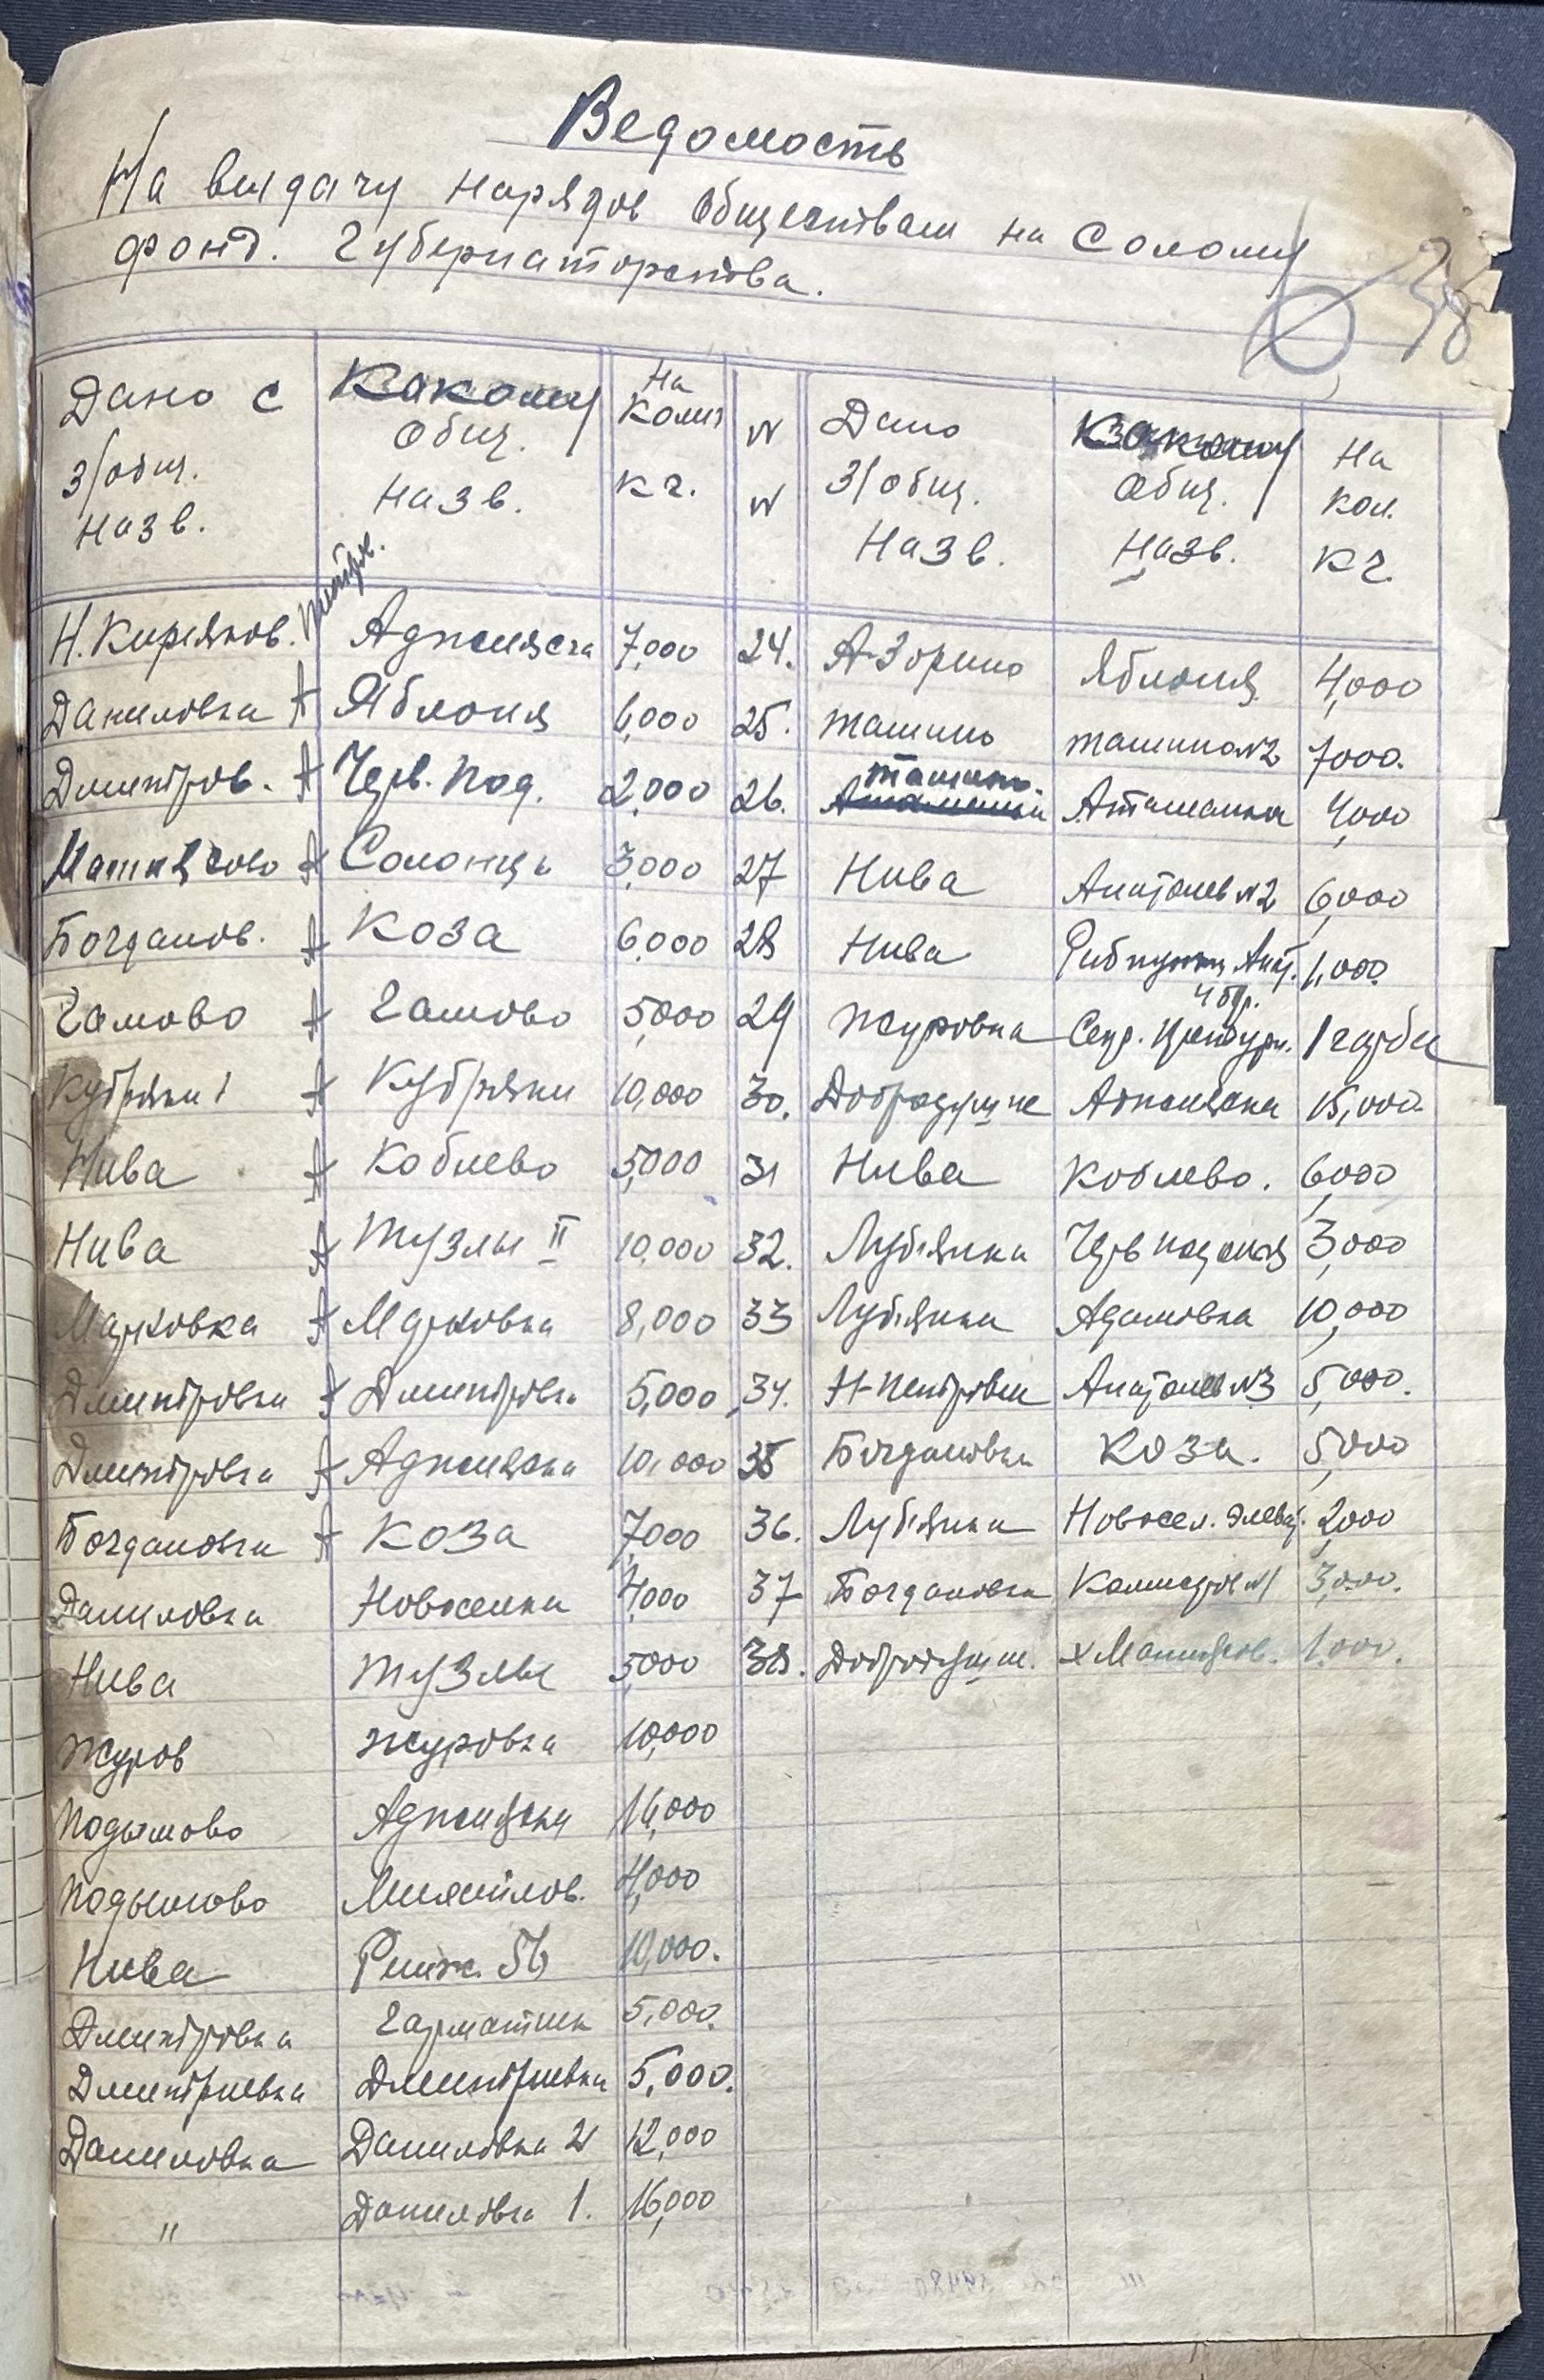 Ведомость
На выдачу нарядов обществам на Солому
фонд. Губернаторства.
38
Дано с З/общ. назв. Какому общ. назв. На колич кг. № № Дано З/общ. Назв. Какому общ. Назв. На кол. кг.
Н. Киряков. Аджияска 7,000 24. А-Зорино Яблоня 4,000
Даниловка А Яблоня 6,000 25. Ташино Ташино №2 7000.
Дмитров. А Черв. Под. 2,000 26. Ташино. Аташанка 4,000
Матиясово А Солонцы 3,000 27 Нива Анатолев №2 6,000
Богданов. А Коза 6,000 28 Нива Рибпункт Анат. 1,000
Гамово А Гамово 5,000 29 Журовка Сепр. 1 гарба
Кубряки 1 А Кубряки 10,000 30. Добродушне Аджияска 15,000
Нива А Коблево 5,000 31 Нива Коблево. 6,000
Нива А Тузлы II 10,000 32. Лубянка Черв 3,000
Марковка А Марковка 8,000 33 Лубянка Адамовка 10,000
Дмитровка А Дмитровка 5,000 34. Н-Петровка Анатолев №3 5,000.
Дмитровка А Аджияска 10,000 35 Богдановка Коза. 5,000
Богдановка А Коза 7,000 36. Лубянка Новосел. элеват. 2,000
Даниловка Новоселка 4,000 37 Богдановка Комиссаров №1 3,000.
Нива Тузлы 5,000 38. Добродушн. х Матиясов. 1,000.
Журов Журовка 10,000
Подымово Аджияска 16,000
Подымово Михайлов. 4,000
Нива Ряж. 56 10,000.
Дмитровка Гарматник 5,000.
Дмитриевка Дмитриевка 5,000.
Даниловка Даниловка 2 12,000
" Даниловка 1. 16,000